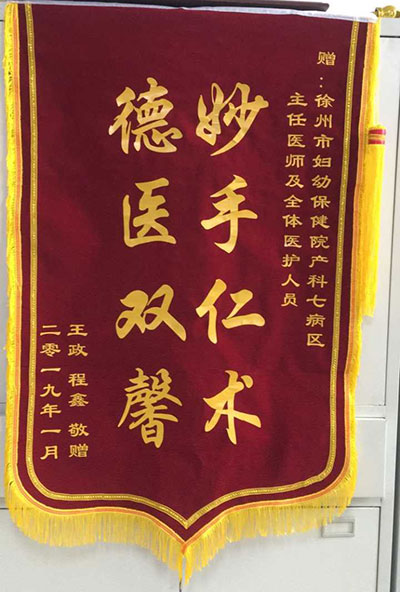 赠：徐州市妇幼保健院产科七病区
主任医师及全体医护人员
妙手仁术
德医双馨
王政 程鑫 敬赠
二零一九年一月